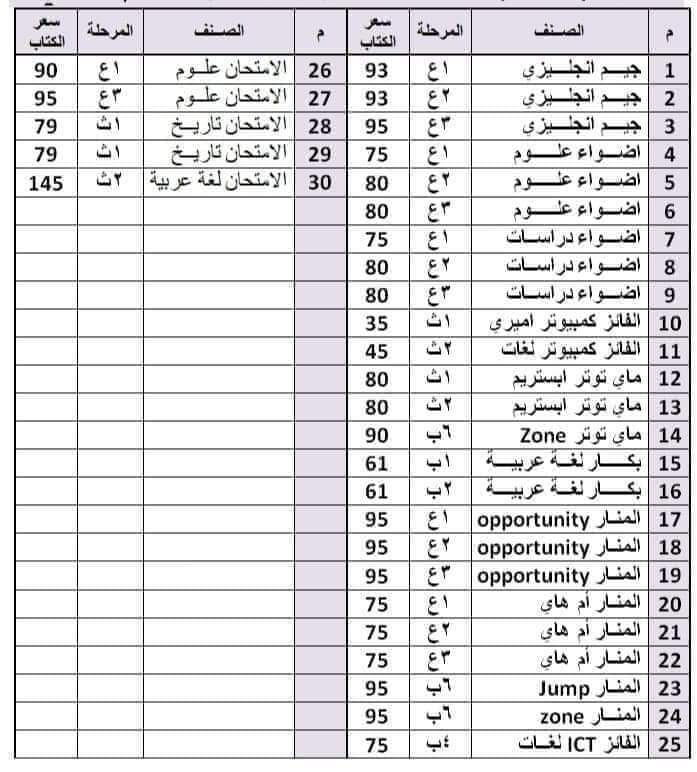 م الصنف المرحلة سعر الكتاب م الصنف المرحلة سعر الكتاب
1 جيم انجليزي ١ع 93 26 الامتحان علوم ١ع 90
2 جيم انجليزي ٢ع 93 27 الامتحان علوم ٣ع 95
3 جيم انجليزي ٣ع 95 28 الامتحان تاريخ ١ث 79
4 اضواء علوم ١ع 75 29 الامتحان تاريخ ١ث 79
5 اضواء علوم ٢ع 80 30 الامتحان لغة عربية ٢ث 145
6 اضواء علوم ٣ع 80
7 اضواء دراسات ١ع 75
8 اضواء دراسات ٢ع 80
9 اضواء دراسات ٣ع 80
10 الفائز كمبيوتر اميري ١ث 35
11 الفائز كمبيوتر لغات ٢ث 45
12 ماي توتر ابستريم ١ث 80
13 ماي توتر ابستريم ٢ث 80
14 ماي توتر Zone ٦ب 90
15 بكار لغة عربية ١ب 61
16 بكار لغة عربية ٢ب 61
17 المنار opportunity ١ع 95
18 المنار opportunity ٢ع 95
19 المنار opportunity ٣ع 95
20 المنار أم هاي ١ع 75
21 المنار أم هاي ٢ع 75
22 المنار أم هاي ٣ع 75
23 المنار Jump ٦ب 95
24 المنار zone ٦ب 95
25 الفائز ICT لغات ٤ب 75